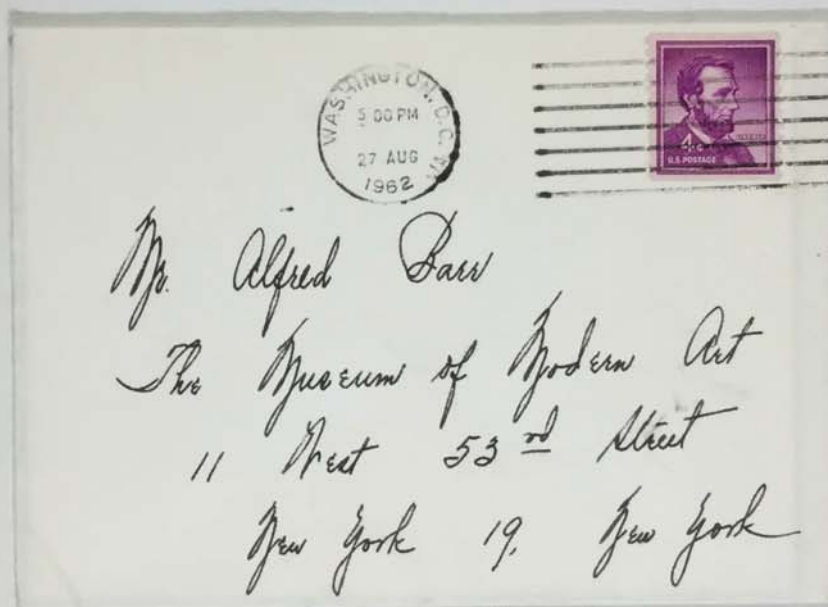 WASHINGTON, D.C.
5 00 PM
27 AUG
1962
4¢
U.S. POSTAGE
Mr. Alfred Barr
The Museum of Modern Art
11 West 53rd Street
New York 19, New York